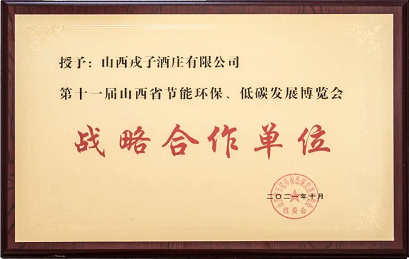 授予：山西戎子酒庄有限公司
第十一届山西省节能环保、低碳发展博览会
战略合作单位
组委会